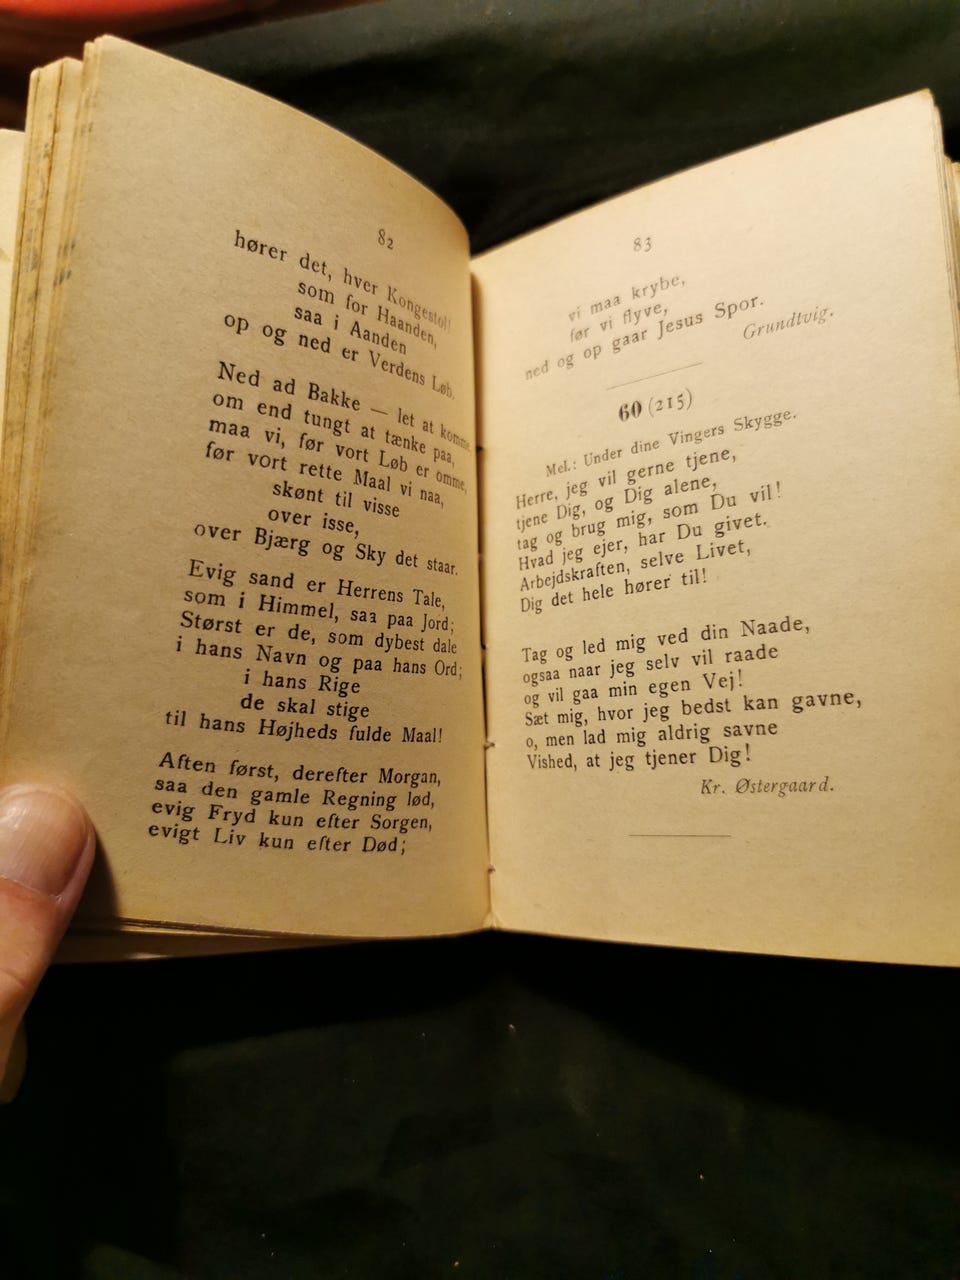 82
hører det, hver Kongestol!
som for Haanden,
saa i Aanden
op og ned er Verdens Løb.
Ned ad Bakke — let at komme,
om end tungt at tænke paa,
maa vi, før vort Løb er omme,
før vort rette Maal vi naa,
skønt til visse
over isse,
over Bjærg og Sky det staar.
Evig sand er Herrens Tale,
som i Himmel, saa paa Jord;
Størst er de, som dybest dale
i hans Navn og paa hans Ord;
i hans Rige
de skal stige
til hans Højheds fulde Maal!
Aften først, derefter Morgan,
saa den gamle Regning lød,
evig Fryd kun efter Sorgen,
evigt Liv kun efter Død;
83
vi maa krybe,
før vi flyve,
ned og op gaar Jesus Spor.
Grundtvig.
60 (215)
Mel.: Under dine Vingers Skygge.
Herre, jeg vil gerne tjene,
tjene Dig, og Dig alene,
tag og brug mig, som Du vil!
Hvad jeg ejer, har Du givet.
Arbejdskraften, selve Livet,
Dig det hele hører til!
Tag og led mig ved din Naade,
ogsaa naar jeg selv vil raade
og vil gaa min egen Vej!
Sæt mig, hvor jeg bedst kan gavne,
o, men lad mig aldrig savne
Vished, at jeg tjener Dig!
Kr. Østergaard.